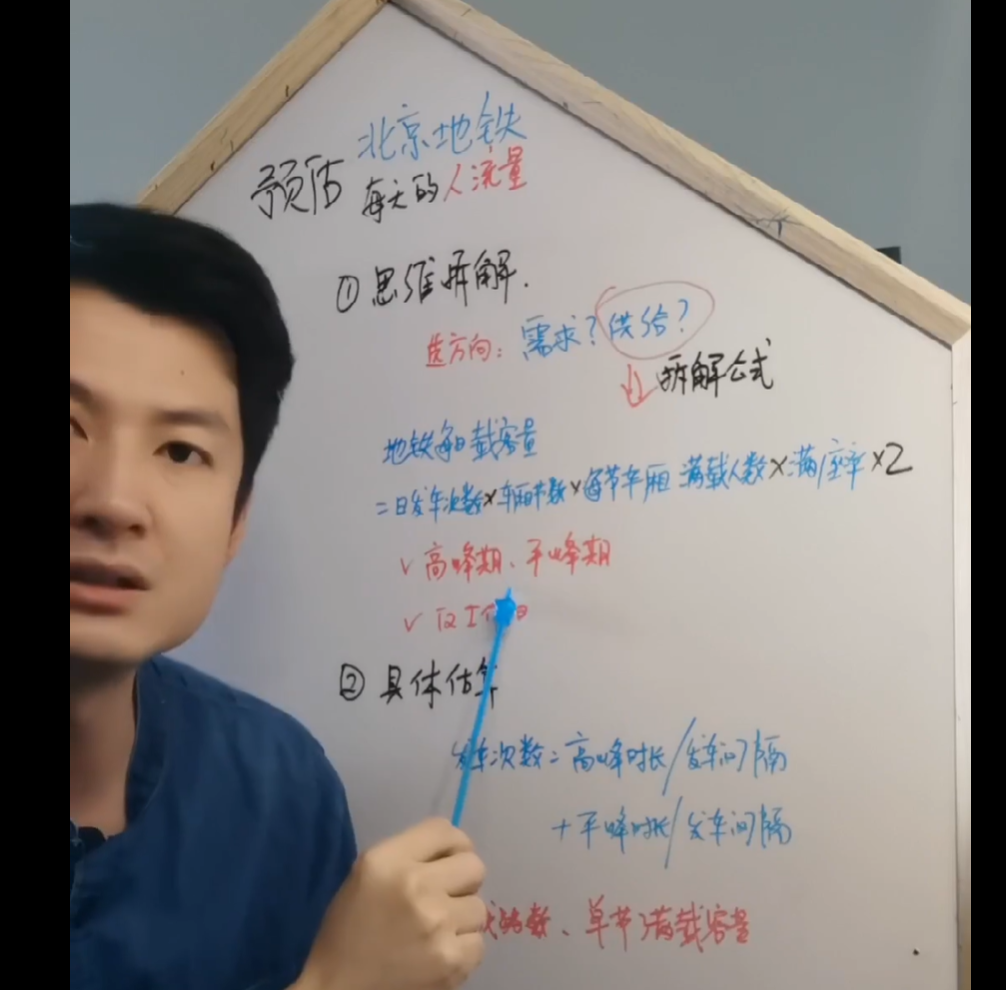 北京地铁
预估 每天的人流量
① 思维拆解.
选方向: 需求? 供给?
拆解公式
地铁每日载容量
=日发车次数×车厢节数×每节车厢满载人数×满座率×2
√ 高峰期、平峰期
√ 工作日
② 具体估算
发车次数=高峰时长/发车间隔
+平峰时长/发车间隔
数、单节满载容量